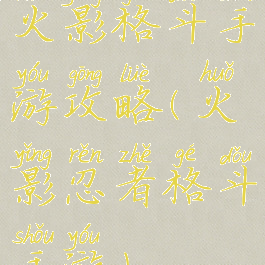 火影格斗手
yóu gōng lüè huǒ
游攻略(火
yǐng rěn zhě gé dòu
影忍者格斗
shǒu yóu
手游)